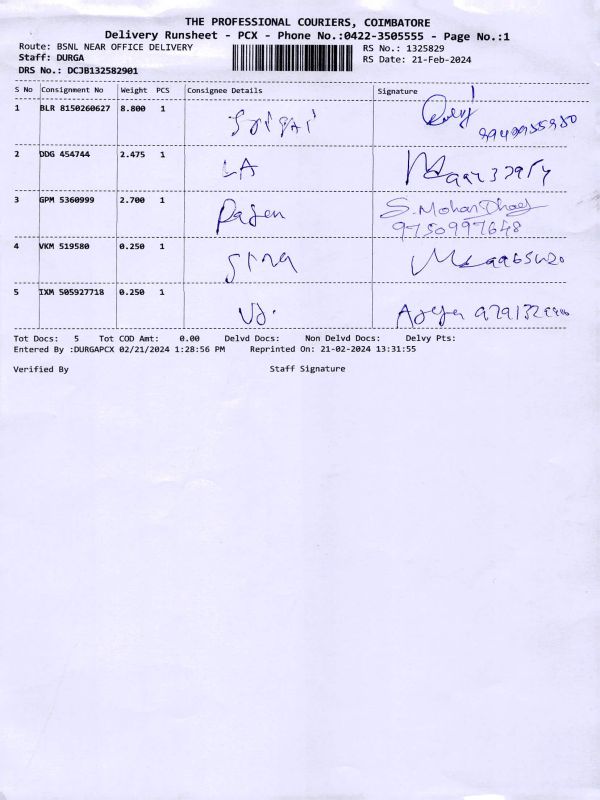 THE PROFESSIONAL COURIERS, COIMBATORE
Delivery Runsheet - PCX - Phone No.:0422-3505555 - Page No.:1
Route: BSNL NEAR OFFICE DELIVERY
RS No.: 1325829
Staff: DURGA
RS Date: 21-Feb-2024
DRS No.: DCJB132582901
S No Consignment No Weight PCS Consignee Details Signature
1 BLR 8150260627 8.800 1
2 DDG 454744 2.475 1 LA
3 GPM 5360999 2.700 1 Rajen S. Mohan Dhaej
9750997648
4 VKM 519580 0.250 1
5 IXM 505927718 0.250 1
Tot Docs: 5 Tot COD Amt: 0.00 Delvd Docs: Non Delvd Docs: Delvy Pts:
Entered By :DURGAPCX 02/21/2024 1:28:56 PM Reprinted On: 21-02-2024 13:31:55
Verified By Staff Signature